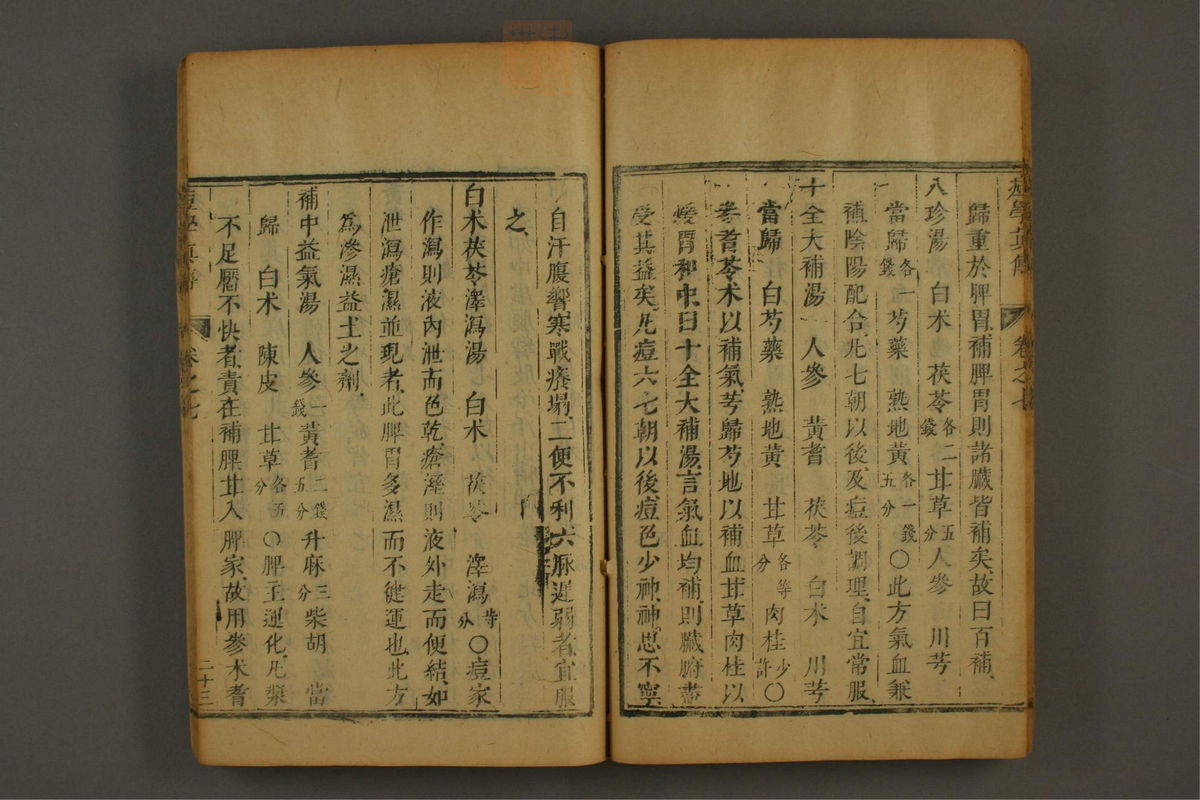 痘學真傳 卷之七
歸重於脾胃、補脾胃則諸臟皆補矣、故曰百補、
八珍湯 白术 茯苓各二錢 甘草五分 人參 川芎
當歸各一錢 芍藥 熟地黃各一錢五分 ○此方氣血兼
補、陰陽配合、凡七朝以後及痘後調理、自宜常服、
十全大補湯 人參 黃耆 茯苓 白术 川芎
當歸 白芍藥 熟地黃 甘草各等分 肉桂少許 ○
參耆苓术以補氣、芎歸芍地以補血、甘草肉桂以
煖胃和中、曰十全大補湯、言氣血均補、則臟腑盡
受其益矣、凡痘六七朝以後、痘色少神、神思不寧
自汗腹響、寒戰癢塌、二便不利、六脉遲弱者、宜服
之、
白术茯苓澤瀉湯 白术 茯苓 澤瀉等分 ○痘家
作瀉則液內泄而色乾、瘡溼則液外走而便結、如
泄瀉瘡濕並現者、此脾胃多濕而不健運也、此方
為滲濕益土之劑、
補中益氣湯 人參一錢 黃耆二錢五分 升麻三分 柴胡 當
歸 白术 陳皮 甘草各五分 ○脾主運化、凡漿
不足靨不快者、責在補脾、甘入脾家、故用參术耆
二十三
痘學真傳 卷之七